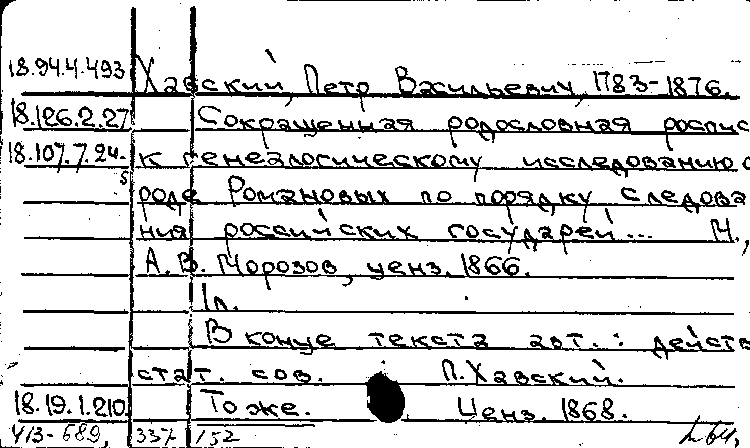 18.94.4.493 Хавский, Петр Васильевич, 1783-1876.
18.126.2.27 Сокращенная родословная роспис
18.107.7.24. к генеалогическому исследованию о
роде Романовых по порядку следова
ния российских государей... М.,
А. В. Морозов, ценз. 1866.
1 л.
В конце текста авт.: действ
стат. сов. П. Хавский.
18.19.1.210 То же. Ценз. 1868.
413-689, 337 152